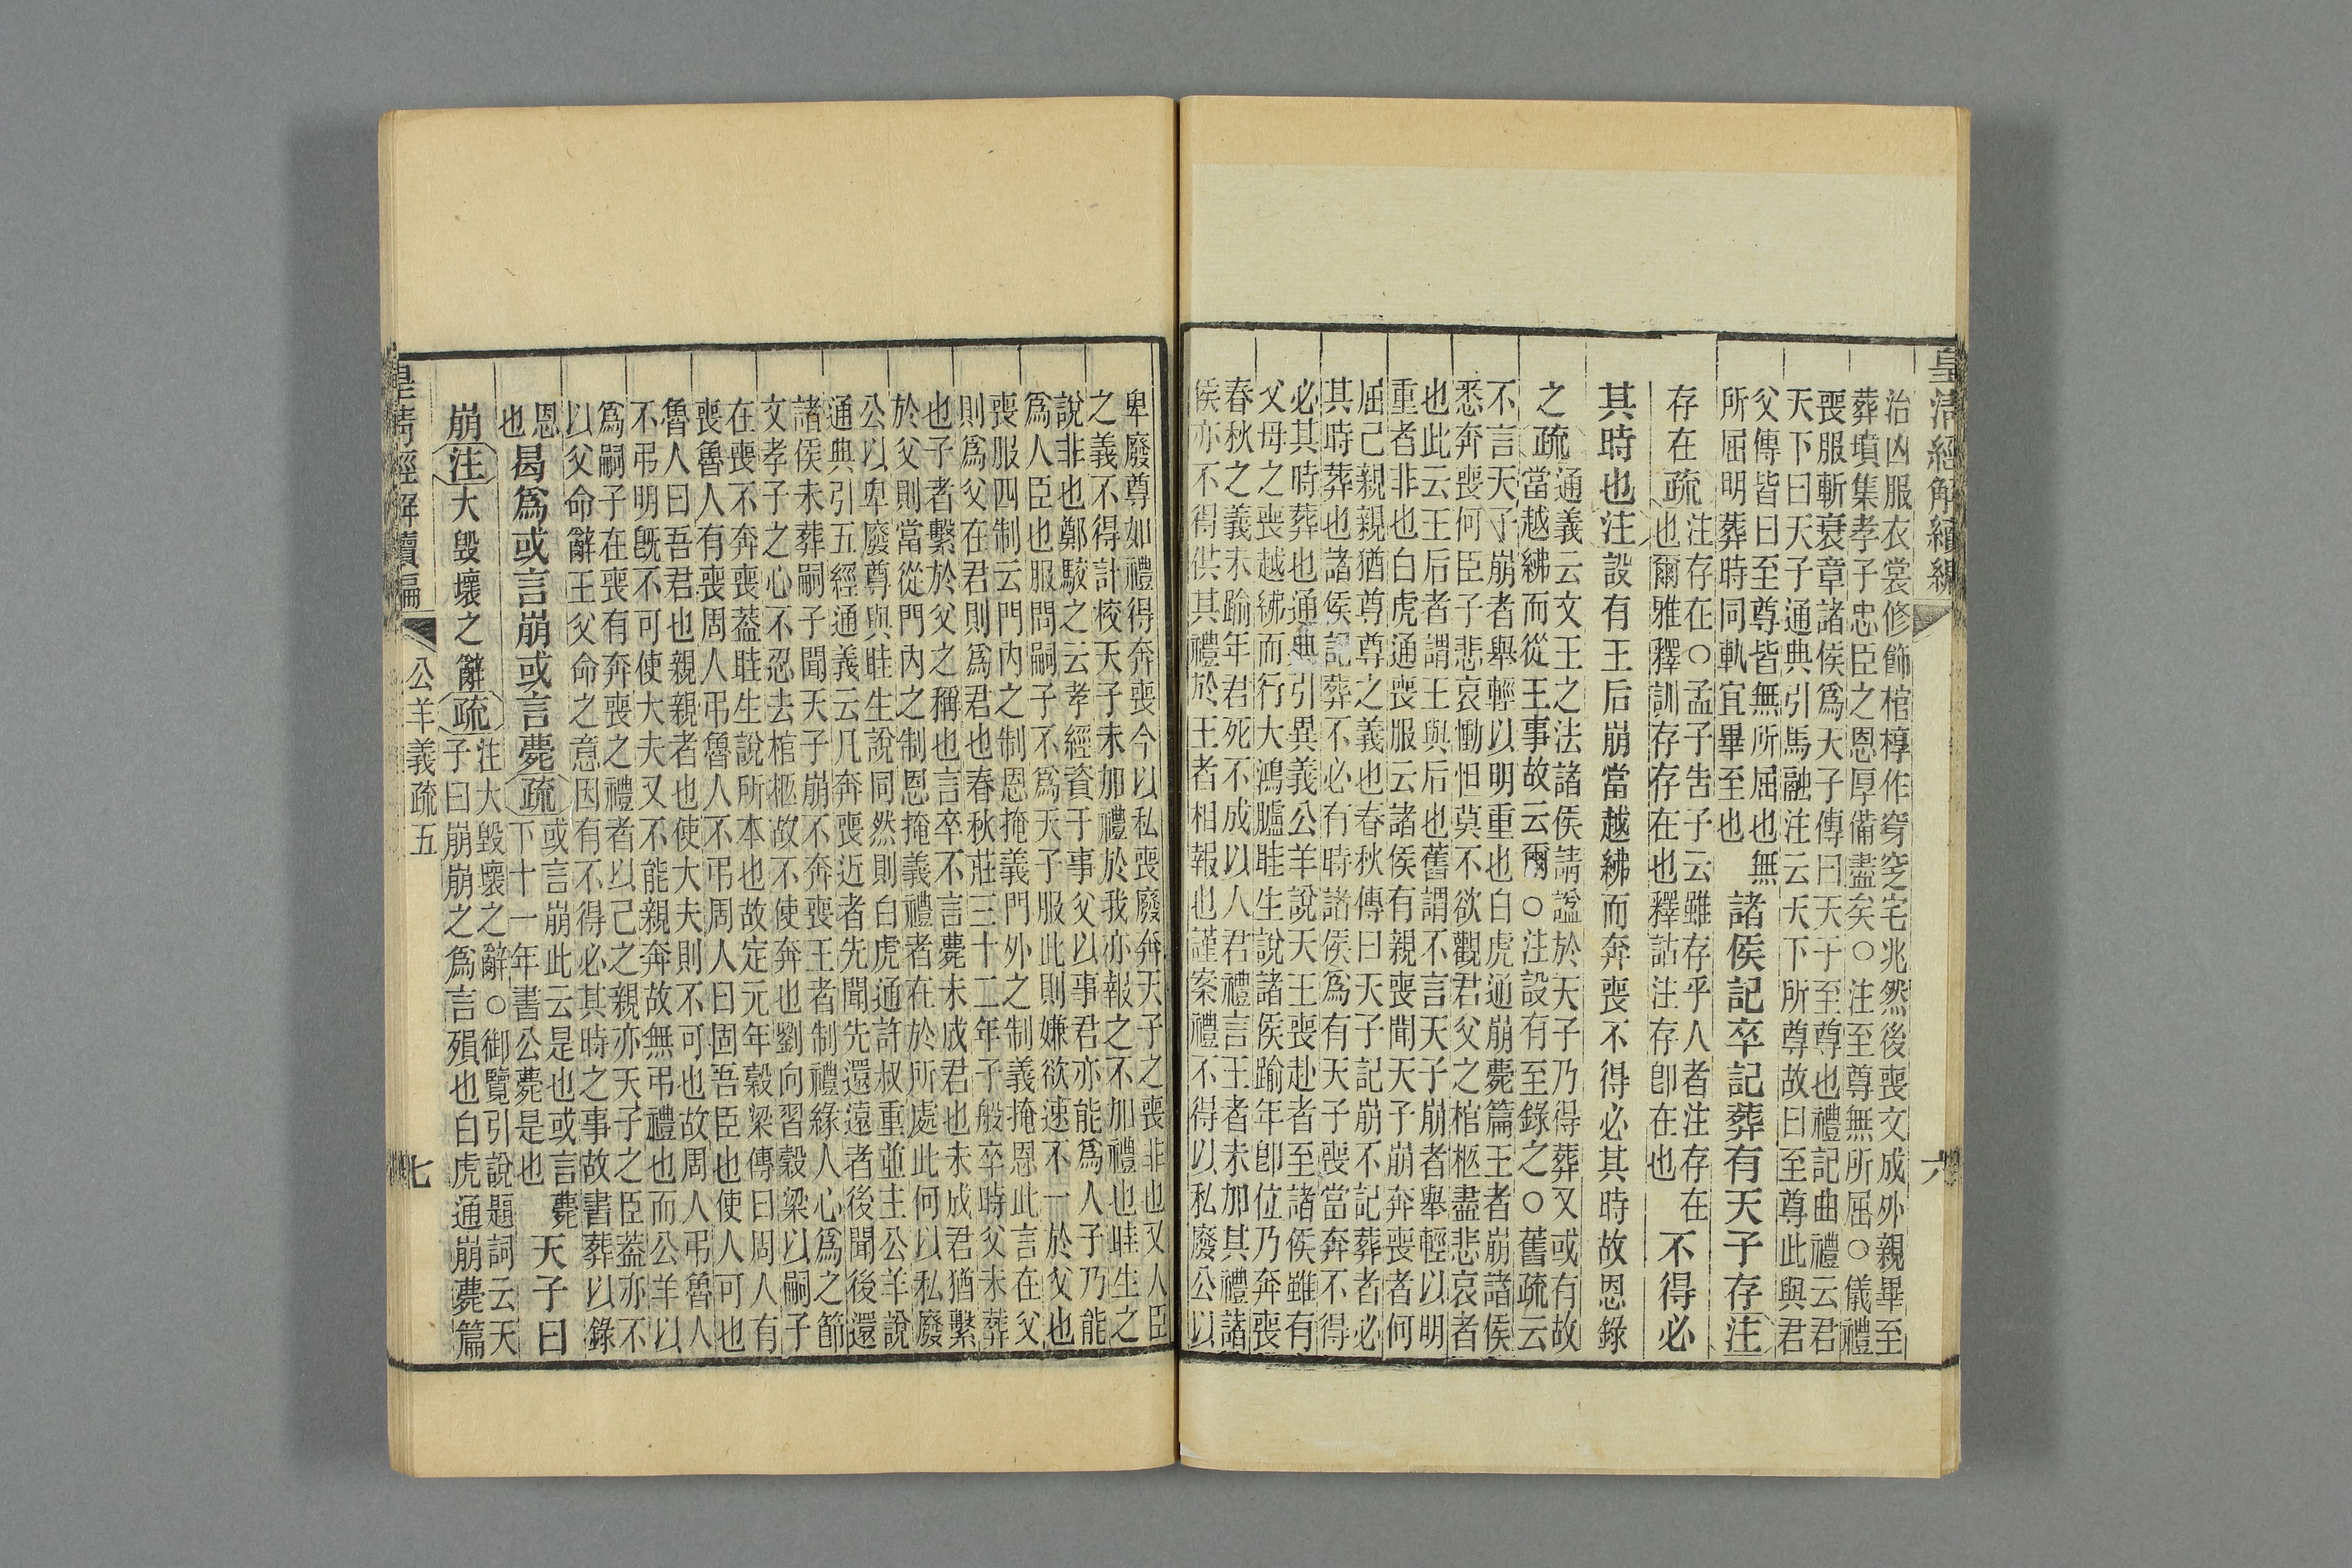 皇清經解續編
治凶服衣裳修飾棺椁作穿窆宅兆然後喪文成外親畢至
葬墳集孝子忠臣之恩厚備盡矣○注至尊無所屈○儀禮
喪服斬衰章諸侯爲天子傳曰天子至尊也禮記曲禮云君
天下曰天子通典引馬融注云天下所尊故曰至尊此與君
父傳皆曰至尊皆無所屈也無
所屈明葬時同軌宜畢至也
諸侯記卒記葬有天子存注
存在疏
注存在○孟子告子云雖存乎人者注存在
也爾雅釋訓存存在也釋詁注存卽在也
不得必
其時也注設有王后崩當越紼而奔喪不得必其時故恩錄
之疏
通義云文王之法諸侯請諡於天子乃得葬又或有故
當越紼而從王事故云爾○注設有至錄之○舊疏云
不言天子崩者舉輕以明重也白虎通崩薨篇王者崩諸侯
悉奔喪何臣子悲哀慟怛莫不欲觀君父之棺柩盡悲哀者
也此云王后者謂王與后也舊謂不言天子崩者舉輕以明
重者非也白虎通喪服云諸侯有親喪聞天子崩奔喪者何
屈己親親猶尊尊之義也春秋傳曰天子記崩不記葬者必
其時葬也諸侯記葬不必有時諸侯爲有天子喪當奔不得
必其時葬也通典引異義公羊說天王喪赴者至諸侯雖有
父母之喪越紼而行大鴻臚眭生說諸侯踰年卽位乃奔喪
春秋之義未踰年君死不成以人君禮言王者未加其禮諸
侯亦不得供其禮於王者相報也謹案禮不得以私廢公以
六
卑廢尊如禮得奔喪今以私喪廢奔天子之喪非也又人臣
之義不得計校天子未加禮於我亦報之不加禮也眭生之
說非也鄭駮之云孝經資于事父以事君亦能爲人子乃能
爲人臣也服問嗣子不爲天子服此則嫌欲速不一於父也
喪服四制云門內之制恩掩義門外之制義掩恩此言在父
則爲父在君則爲君也春秋莊三十二年子般卒時父未葬
也子者繫於父之稱也言卒不言薨未成君也未成君猶繫
於父則當從門內之制恩掩義禮者在於所處此何以私廢
公以卑廢尊與眭生說同然則白虎通許叔重並主公羊說
通典引五經通義云凡奔喪近者先聞先還遠者後聞後還
諸侯未葬嗣子聞天子崩不奔喪王者制禮緣人心爲之節
文孝子之心不忍去棺柩故不使奔也劉向習穀梁以嗣子
在喪不奔喪蓋眭生說所本也故定元年穀梁傳曰周人有
喪魯人有喪周人弔魯人不弔周人曰固吾臣也使人可也
魯人曰吾君也親親者也使大夫則不可也故周人弔魯人
不弔明旣不可使大夫又不能親奔故無弔禮也而公羊以
爲嗣子在喪有奔喪之禮者以己之親亦天子之臣蓋亦不
以父命辭王父命之意因有不得必其時之事故書葬以錄
恩
也
曷爲或言崩或言薨疏
或言崩此云是也或言薨
下十一年書公薨是也
天子曰
崩注大毀壞之辭疏
注大毀壞之辭○御覽引說題詞云天
子曰崩崩之爲言殞也白虎通崩薨篇
皇清經解續編
公羊義疏五
七